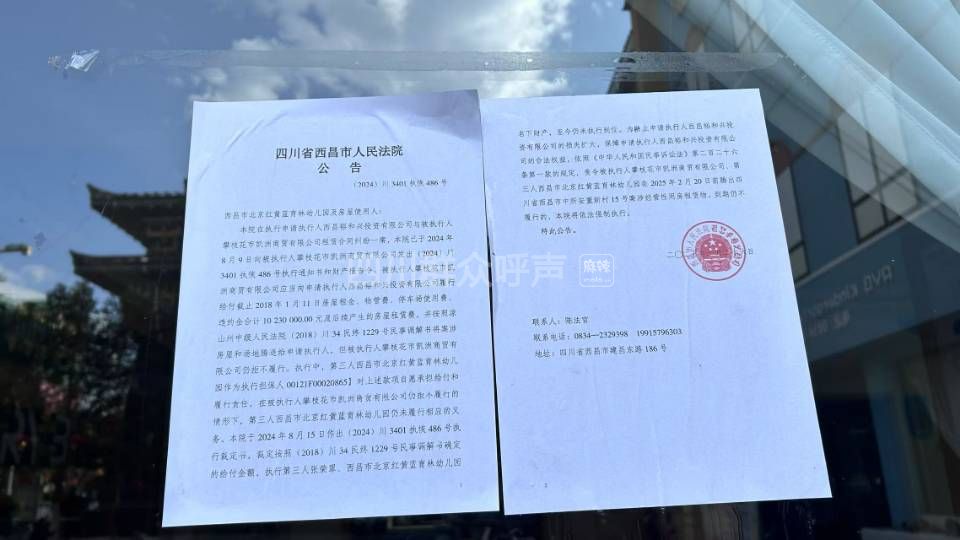 四川省西昌市人民法院
公 告
(2024)川3401执恢486号
西昌市北京红黄蓝育林幼儿园及房屋使用人:
本院在执行申请执行人西昌裕和兴投资有限公司与被执行人
攀枝花市凯洲商贸有限公司租赁合同纠纷一案,本院已于2024年
8月9日向被执行人攀枝花市凯洲商贸有限公司发出(2024)川
3401执恢486号执行通知书和财产报告令,被执行人攀枝花市凯
洲商贸有限公司应当向申请执行人西昌裕和兴投资有限公司履行
给付截止2018年1月11日房屋租金、物管费、停车场使用费、
违约金合计10 230 000.00元及后续产生的房屋租赁费,并按照凉
山州中级人民法院(2018)川34民终1229号民事调解书将案涉
房屋和场地腾退给申请执行人,但被执行人攀枝花市凯洲商贸有
限公司仍拒不履行。执行中,第三人西昌市北京红黄蓝育林幼儿
园作为执行担保人00121F00020865】对上述款项自愿承担给付和
履行责任,在被执行人攀枝花市凯洲商贸有限公司仍拒不履行的
情形下,第三人西昌市北京红黄蓝育林幼儿园仍未履行相应的义
务。本院于2024年8月15日作出(2024)川3401执恢486号执
行裁定书,裁定按照(2018)川34民终1229号民事调解书确定
的给付金额,执行第三人张荣累、西昌市北京红黄蓝育林幼儿园
1
名下财产,至今仍未执行到位。为缺止申请执行人西昌裕和兴投
资有限公司的损失扩大,保障申请执行人西昌裕和兴投资有限公
司的合法权益,依照《中华人民共和国民事诉讼法》第二百二十六
条第一款的规定,责令被执行人攀枝花市凯洲商贸有限公司、第
三人西昌市北京红黄蓝育林幼儿园在2025年2月20日前腾出四
川省西昌市中所安置新村15号案涉经营性用房租赁物。到期仍不
履行的,本院将依法强制执行。
特此公告。
二〇
日
联系人:陈法官
联系电话:0834—2329398 19915796303
地址:四川省西昌市建昌东路186号
2
众呼声
麻辣
RYB Kinder